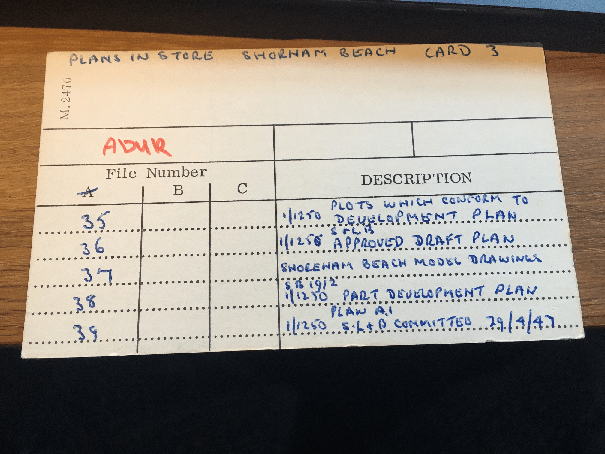 PLANS IN STORE SHORHAM BEACH CARD 3
M.2476
ADUR
File Number
DESCRIPTION
A B C
PLOTS WHICH CONFORM TO
35 1/1250 DEVELOPMENT PLAN
36 1/1250 APPROVED DRAFT PLAN
37 SHOREHAM BEACH MODEL DRAWINGS
SB 1912
38 1/1250 PART DEVELOPMENT PLAN
PLAN A1
39 1/1250 S.L+B COMMITTED 29/4/47